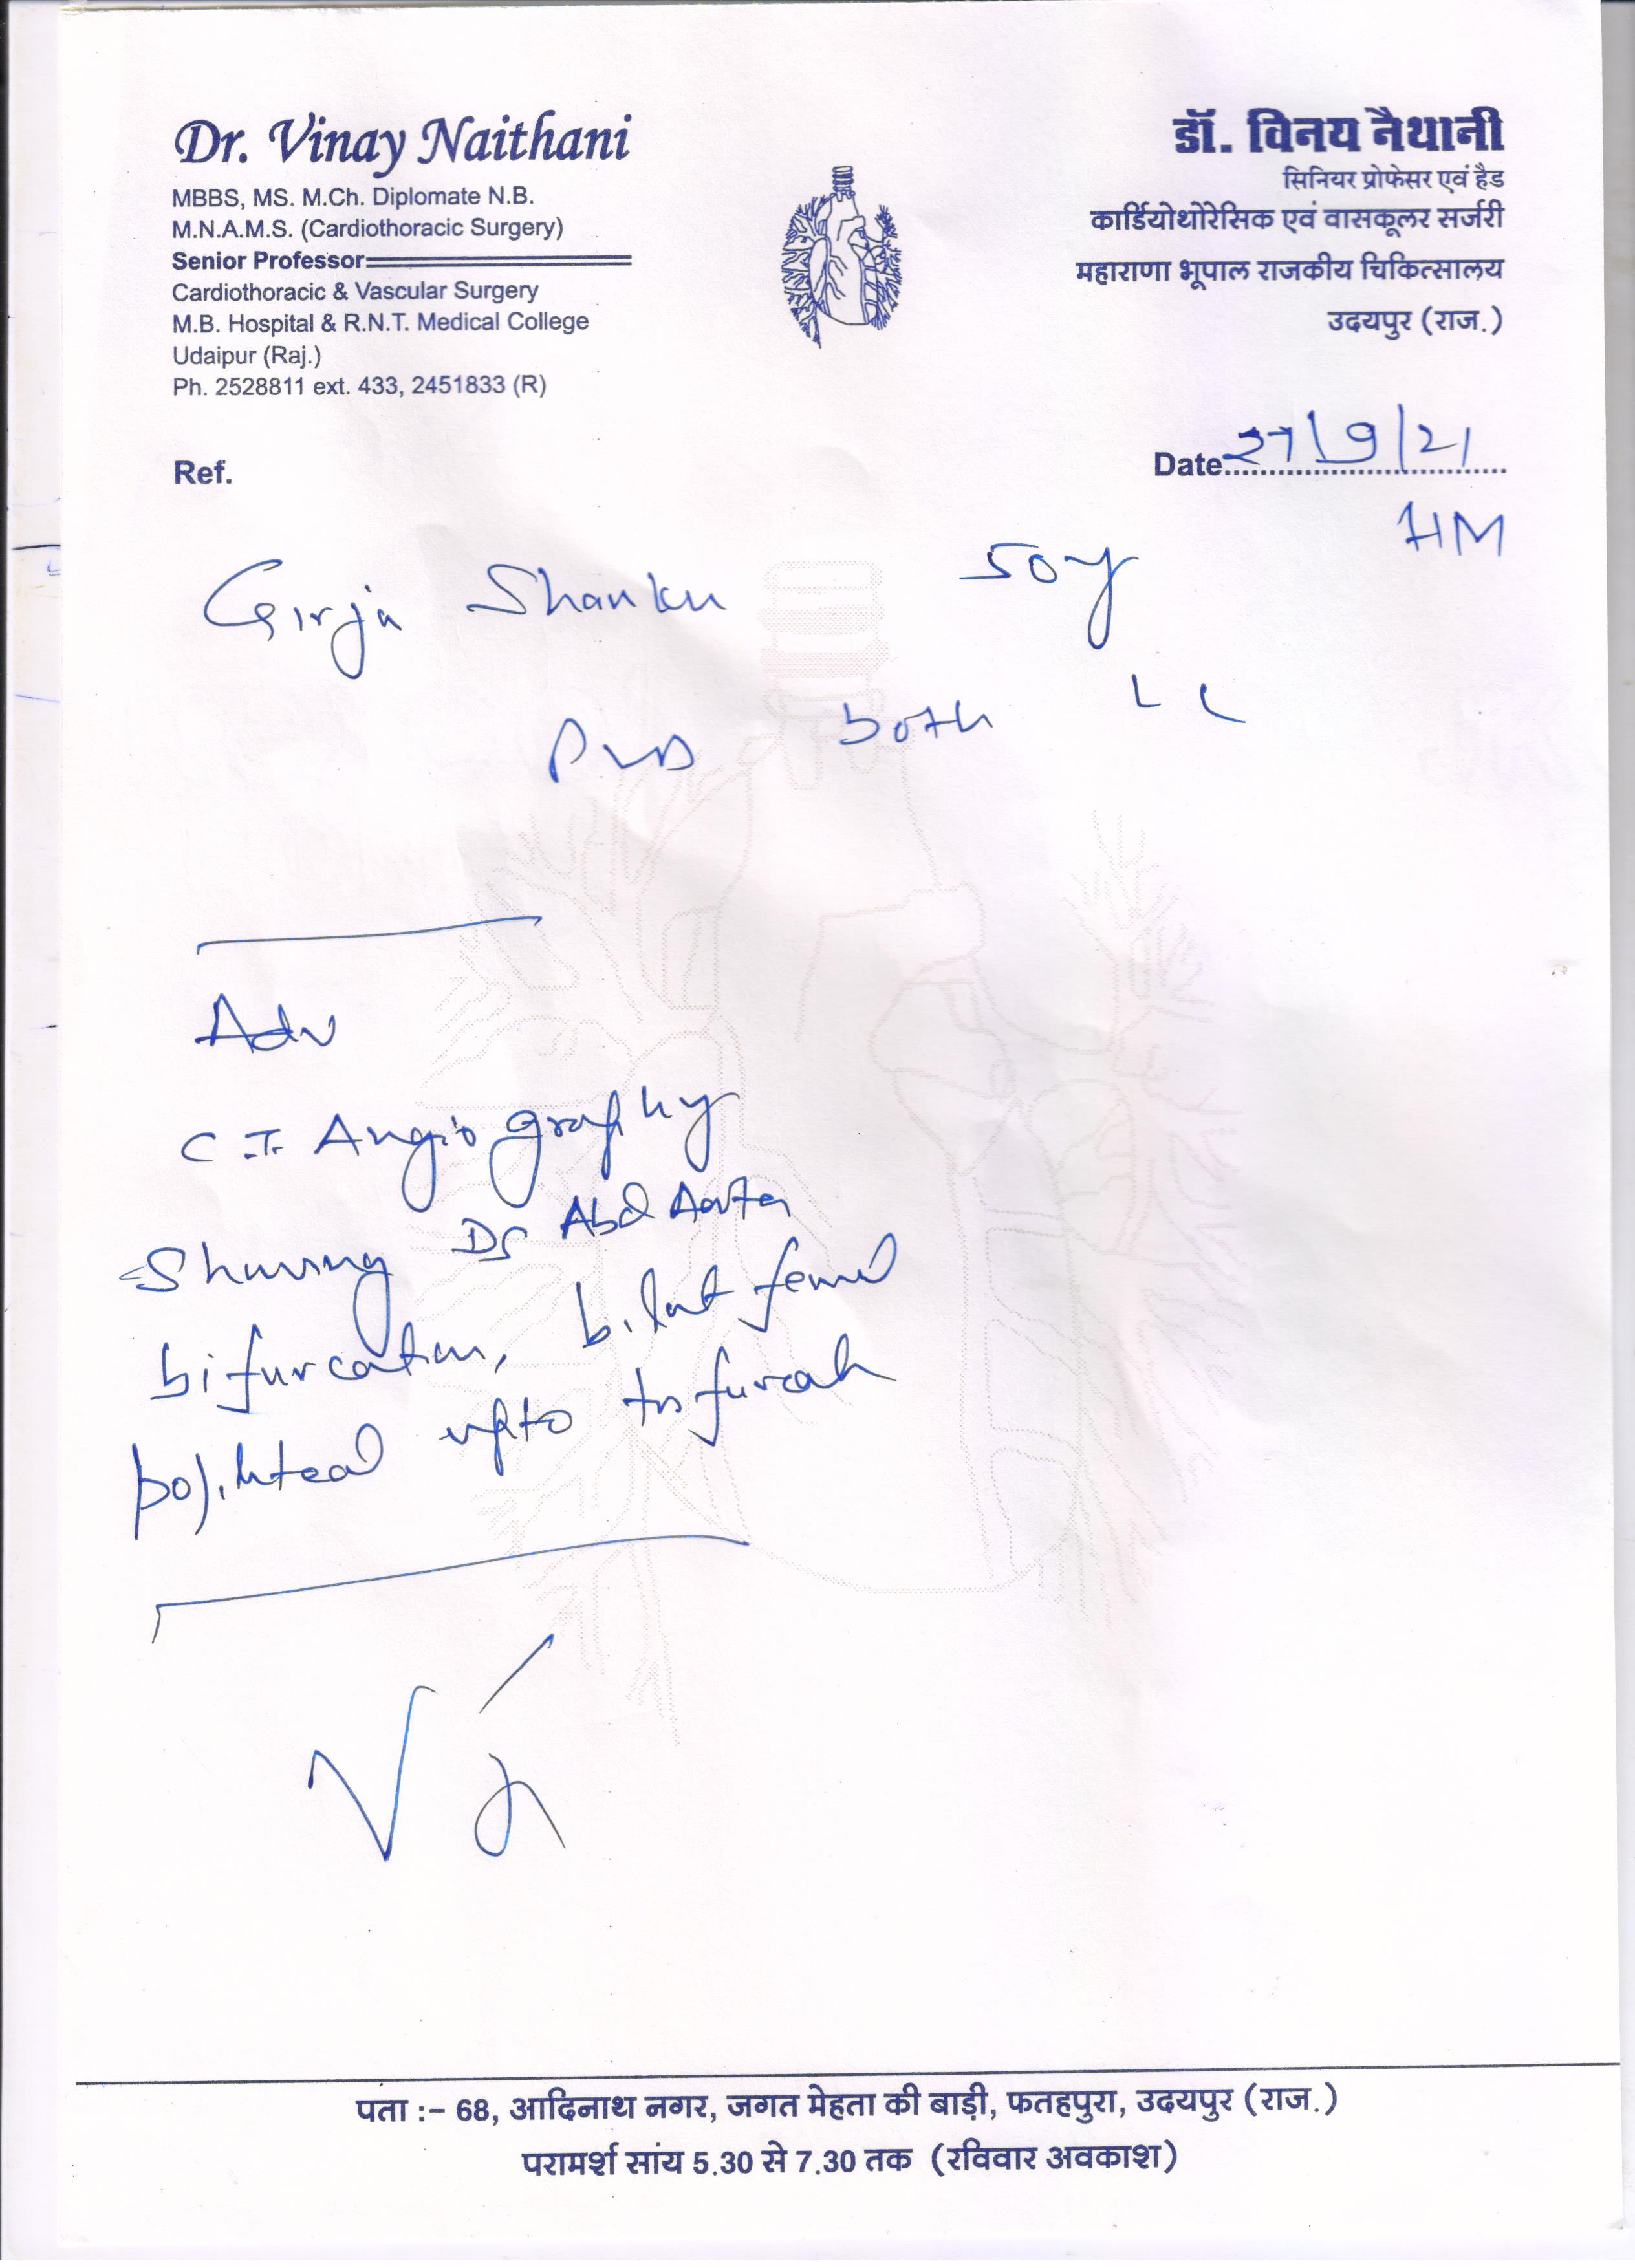 Dr. Vinay Naithani
MBBS, MS. M.Ch. Diplomate N.B.
M.N.A.M.S. (Cardiothoracic Surgery)
Senior Professor
Cardiothoracic & Vascular Surgery
M.B. Hospital & R.N.T. Medical College
Udaipur (Raj.)
Ph. 2528811 ext. 433, 2451833 (R)
डॉ. विनय नैथानी
सिनियर प्रोफेसर एवं हैड
कार्डियोथोरेसिक एवं वासकूलर सर्जरी
महाराणा भूपाल राजकीय चिकित्सालय
उदयपुर (राज.)
Ref.
Date 27/9/21
HM
Girja Shanker 50y
PVD both LL
Adv
C.T. Angiography
Showing Ds Abd Aorta
bifurcation, bilat femoral
popliteal upto trifurcatn
पता :– 68, आदिनाथ नगर, जगत मेहता की बाड़ी, फतहपुरा, उदयपुर (राज.)
परामर्श सांय 5.30 से 7.30 तक (रविवार अवकाश)